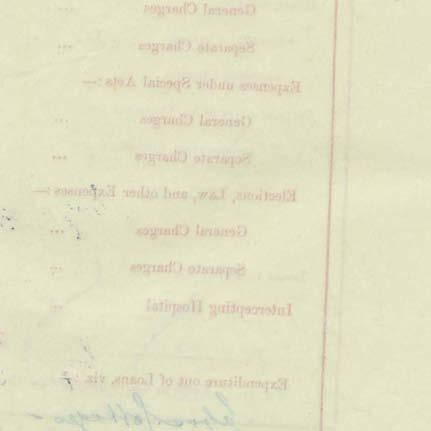 General Charges ...
Separate Charges ...
Expenses under Special Acts :—
General Charges ...
Separate Charges ...
Elections, Law, and other Expenses :—
General Charges ...
Separate Charges ...
Intercepting Hospital ...
Expenditure out of Loans, viz. :—